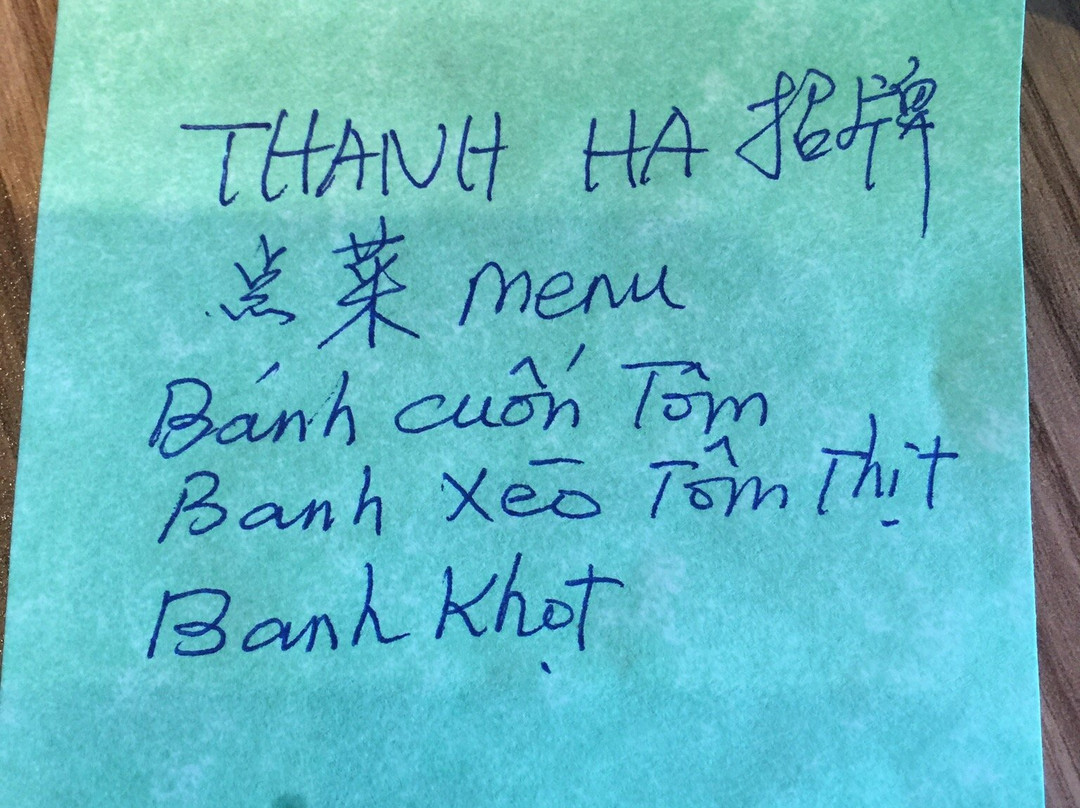 THANH HA 招牌
点菜 menu
Bánh cuốn Tôm
Banh xēo Tôm Thịt
Banh Khọt